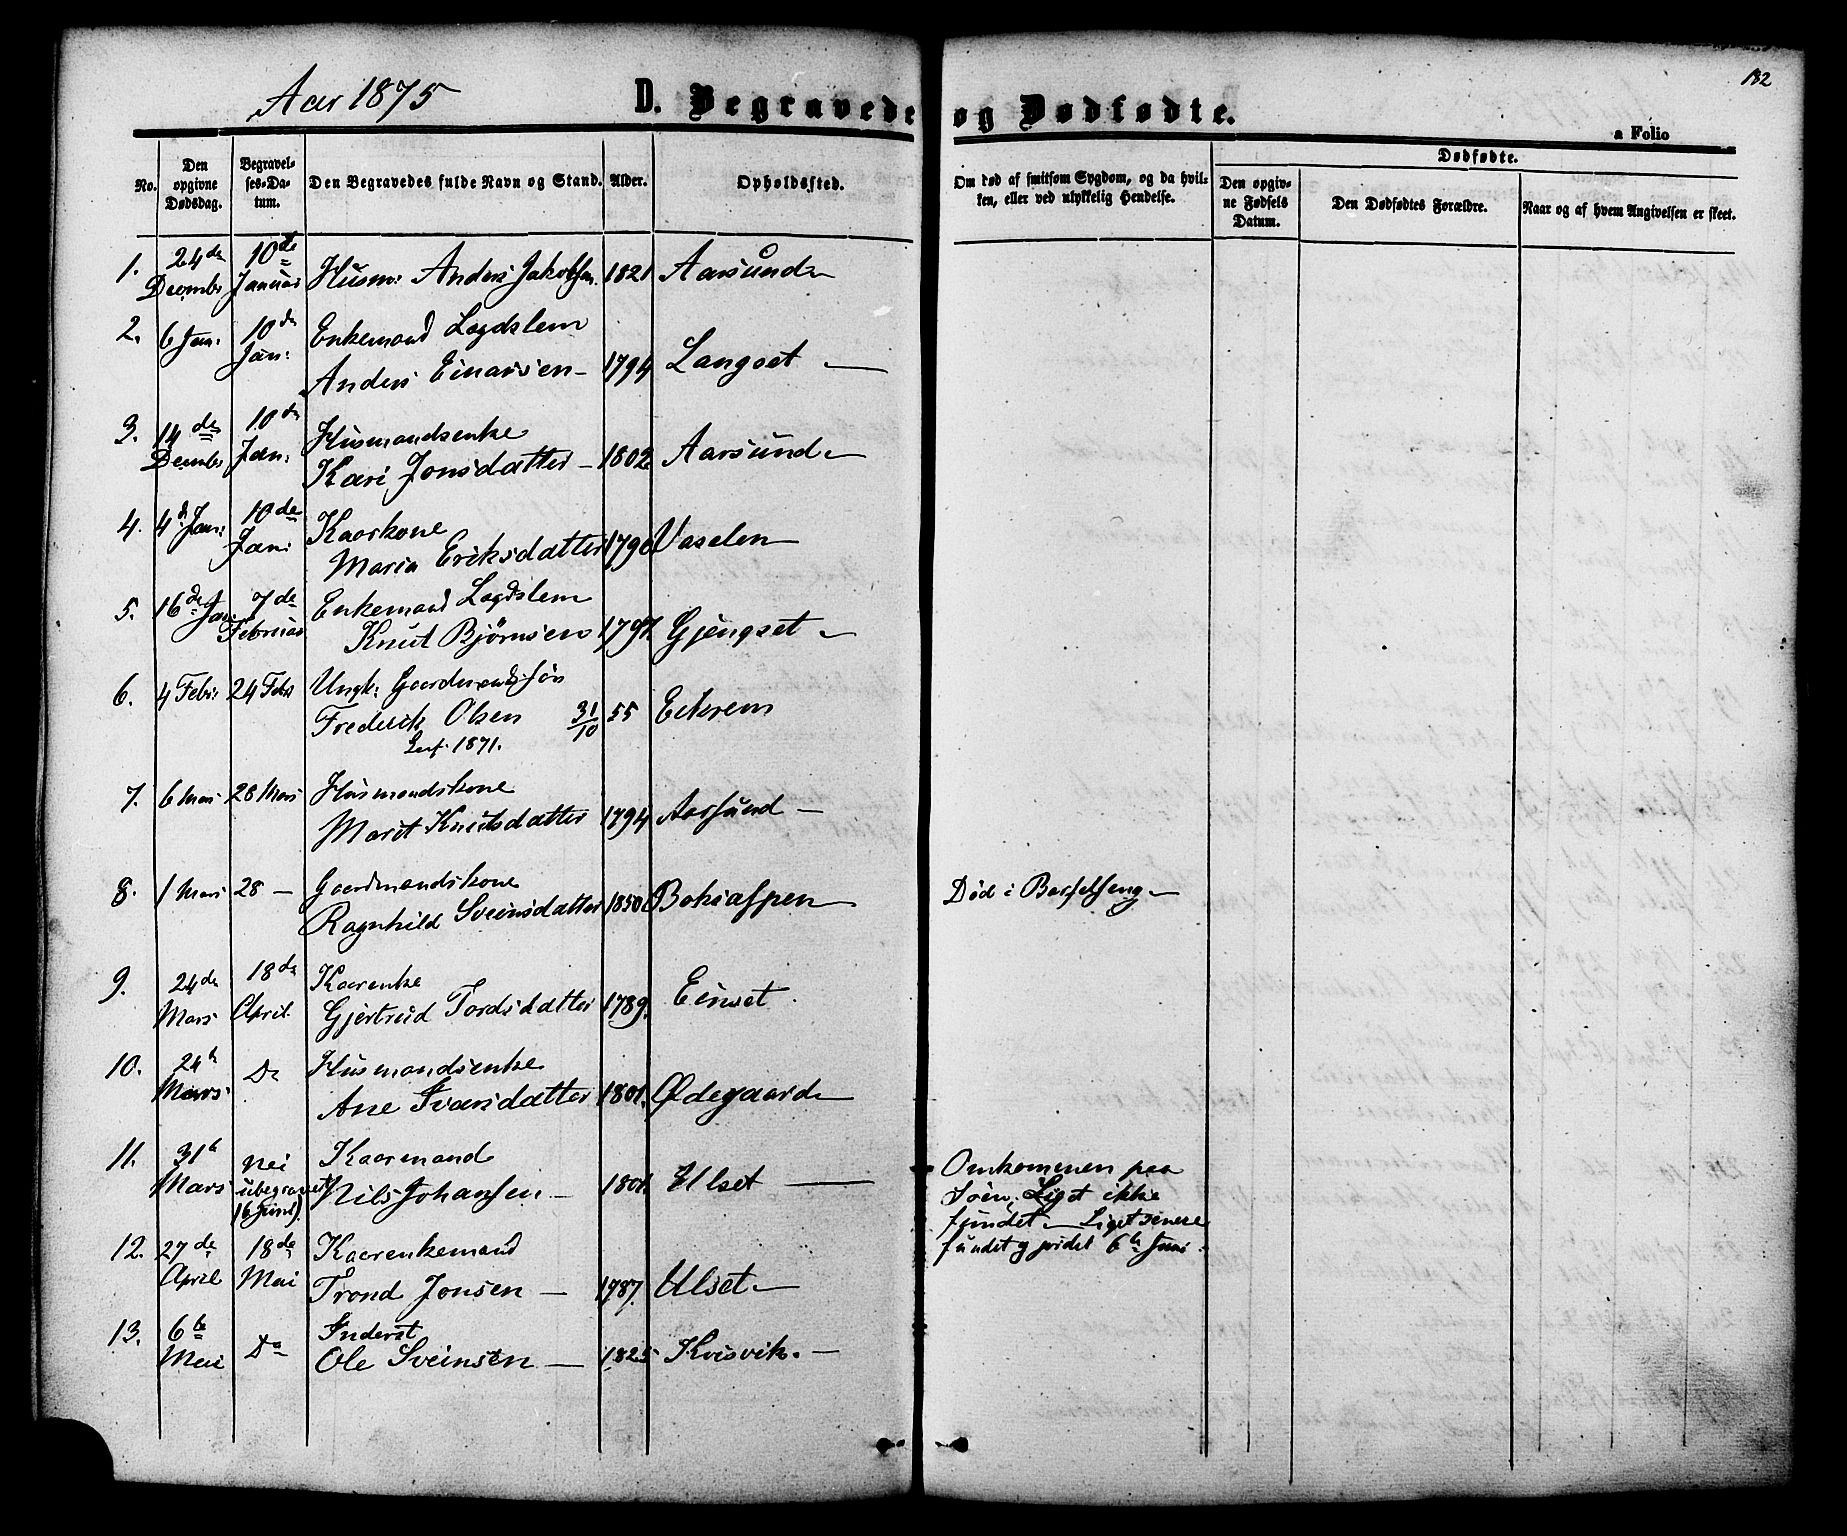 182
Aar 1875
D. Begravede og Dødfødte.
a Folio
No.
Den opgivne Dødsdag.
Begravelses-Datum.
Den Begravedes fulde Navn og Stand.
Alder.
Opholdssted.
Om død af smitsom Sygdom, og da hvilken, eller ved ulykkelig Hendelse.
Dødfødte.
Den opgivne Fødsels Datum.
Den Dødfødtes Forældre.
Naar og af hvem Angivelsen er skeet.
1. 24de Decembr 10de Januar Husm: Anders Jakobsen. 1821 Aarsund
2. 6 Jan: 10de Jan: Enkemand Lægdslem
Anders Einarsen 1794 Langset
3. 14de Decembr 10de Jan: Husmandsenke
Kari Jonsdatter 1802 Aarsund
4. 4de Jan: 10de Jan: Kaarkone
Maria Eriksdatter 1790 Vaselen
5. 16de Jan: 7de Februar Enkemand Lægdslem
Knut Bjørnsen 1797 Gjengset
6. 4 Febr: 24 Febr Ungk: Gaardmandssøn
Frederik Olsen 31/10 55 Eikrem
1871.
7. 6 Mars 28 Mars Husmandskone
Marit Knutsdatter 1794 Aarsund
8. 1 Mars 28 — Gaardmandskone
Ragnhild Sveinsdatter 1850 Boksaspen Død i Barselseng
9. 24de Mars 18de April Kaarenke
Gjertrud Tordsdatter 1789. Einset
10. 24de Mars Do Husmandsenke
Ane Ivarsdatter 1801. Ødegaard
11. 31te Mars nei ubegravet (6 Juni) Kaarmand
Nils Johansen 1801. Ulset
Omkommen paa
Søen. Liget ikke
fundet. Liget senere
fundet og jordet 6te Juni.
12. 27de April 18de Mai Kaarenkemand
Trond Jonsen 1787. Ulset
13. 6te Mai Do Inderst
Ole Sveinsen 1825 Kvisvik.